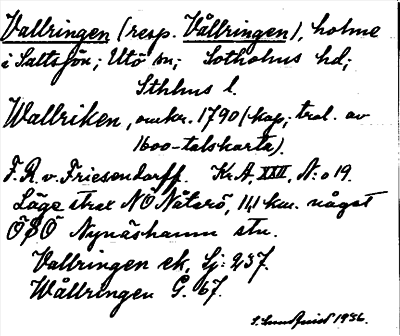 Vallringen (resp. Vållringen), holme
i Saltsjön; Utö sn; Sotholms hd;
Sthlms l.
Wallriken, omkr. 1790 (kop; trol. av
1600-talskarta).
F. R. v. Friesendorff. Kr.A, XXII, N:o 19.
Läge strax NÖ Nåtarö, 14,1 km. något
ÖSÖ Nynäshamn stn.
Vallringen ek, Sj: 237.
Wållringen G. 67.
1936.